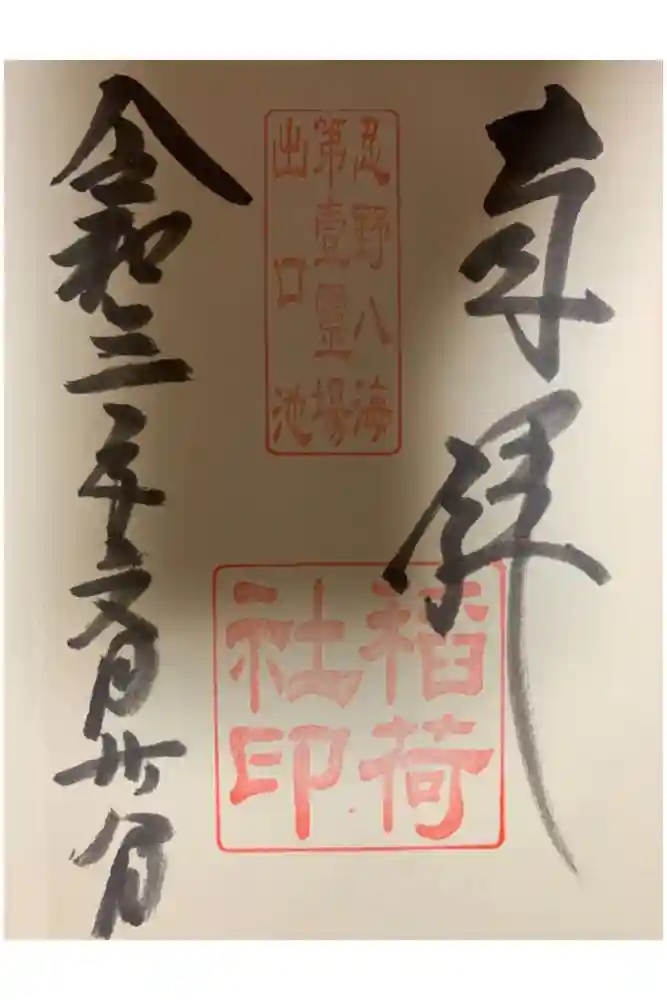 奉拝
忍野八海
第壹霊場
出口池
稲荷
社印
令和三年月廿日